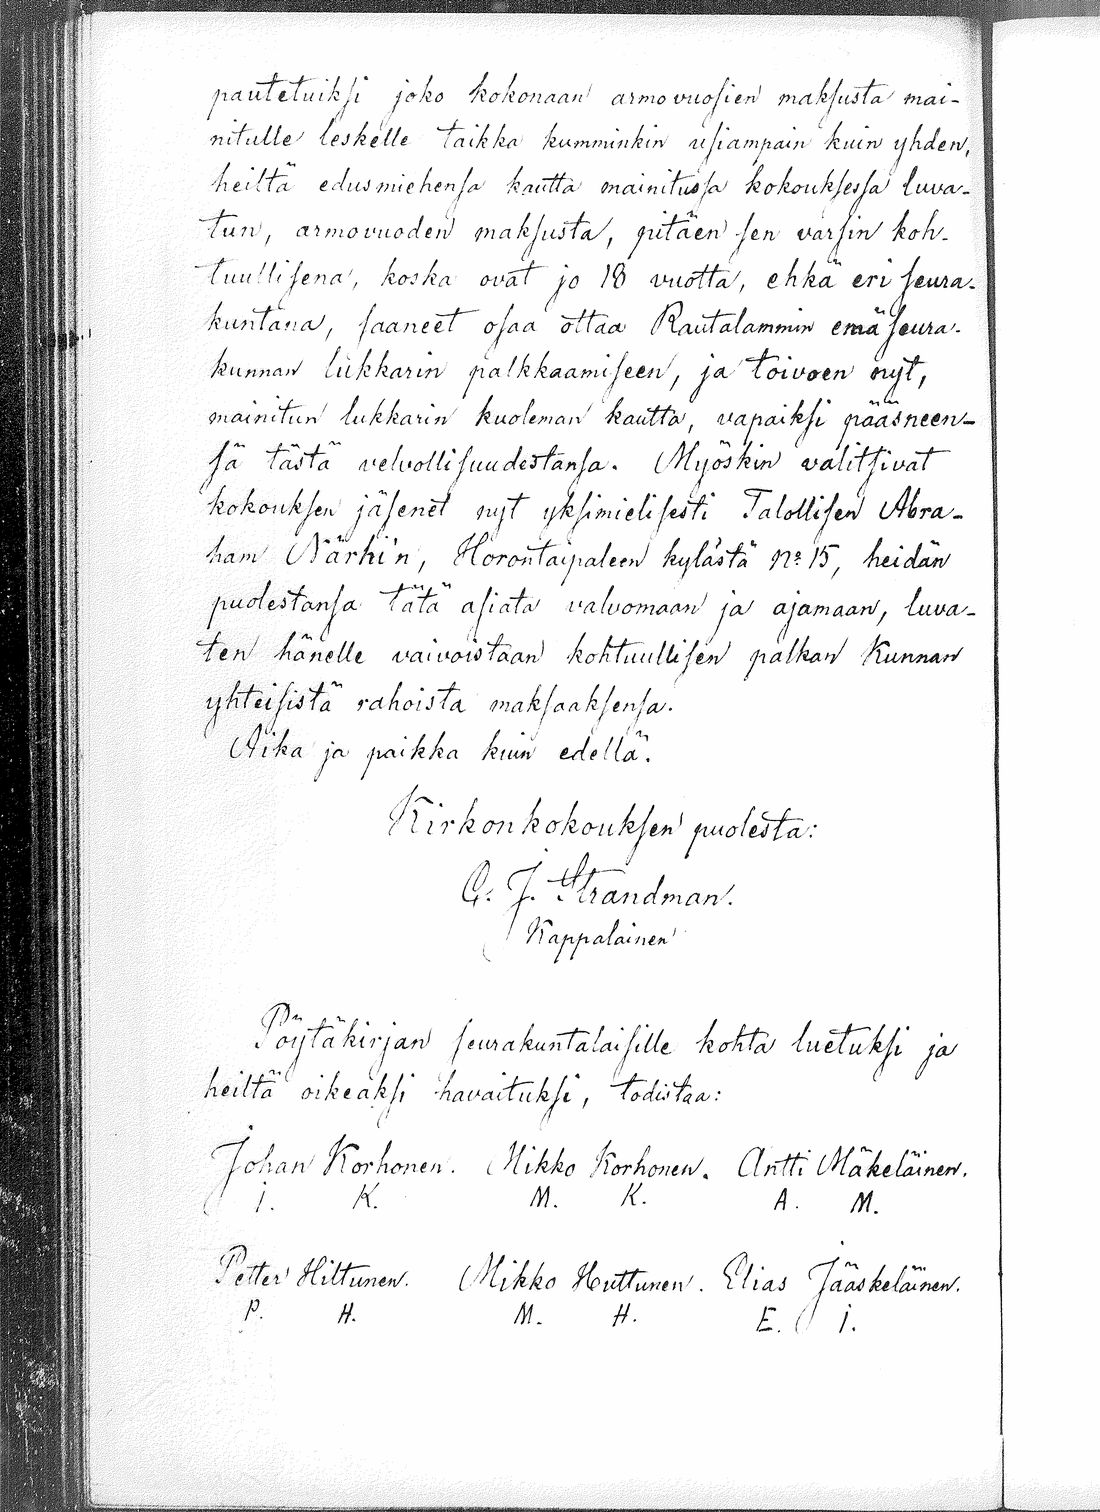 pautetuiksi joko kokonaan armovuosien maksusta mai-
nitulle leskelle taikka kumminkin usiampain kuin yhden,
heiltä edusmiehensa kautta mainitussa kokouksessa luva-
tun, armovuoden maksusta, pitäen sen varsin koh-
tuullisena, koska ovat jo 18 vuotta, ehkä eri seura-
kuntana, saaneet osaa ottaa Rautalammin emäseura-
kunnan lukkarin palkkaamiseen, ja toivoen nyt,
mainitun lukkarin kuoleman kautta, vapaiksi pääsneen-
sä tästä velvollisuudestansa. Myöskin valitsivat
kokouksen jäsenet nyt yksimielisesti Talollisen Abra-
ham Närhi'n, Horontaipaleen kylästä No 15, heidän
puolestansa tätä asiata valvomaan ja ajamaan, luva-
ten hänelle vaivoistaan kohtuullisen palkan Kunnan
yhteisistä rahoista maksaaksensa.
Aika ja paikka kuin edellä.
Kirkonkokouksen puolesta:
C. J. Strandman.
Kappalainen
Pöytäkirjan seurakuntalaisille kohta luetuksi ja
heiltä oikeaksi havaituksi, todistaa:
Johan Korhonen. Mikko Korhonen. Antti Mäkeläinen.
I. K. M. K. A. M.
Petter Hiltunen. Mikko Huttunen. Elias Jääskeläinen.
P. H. M. H. E. I.